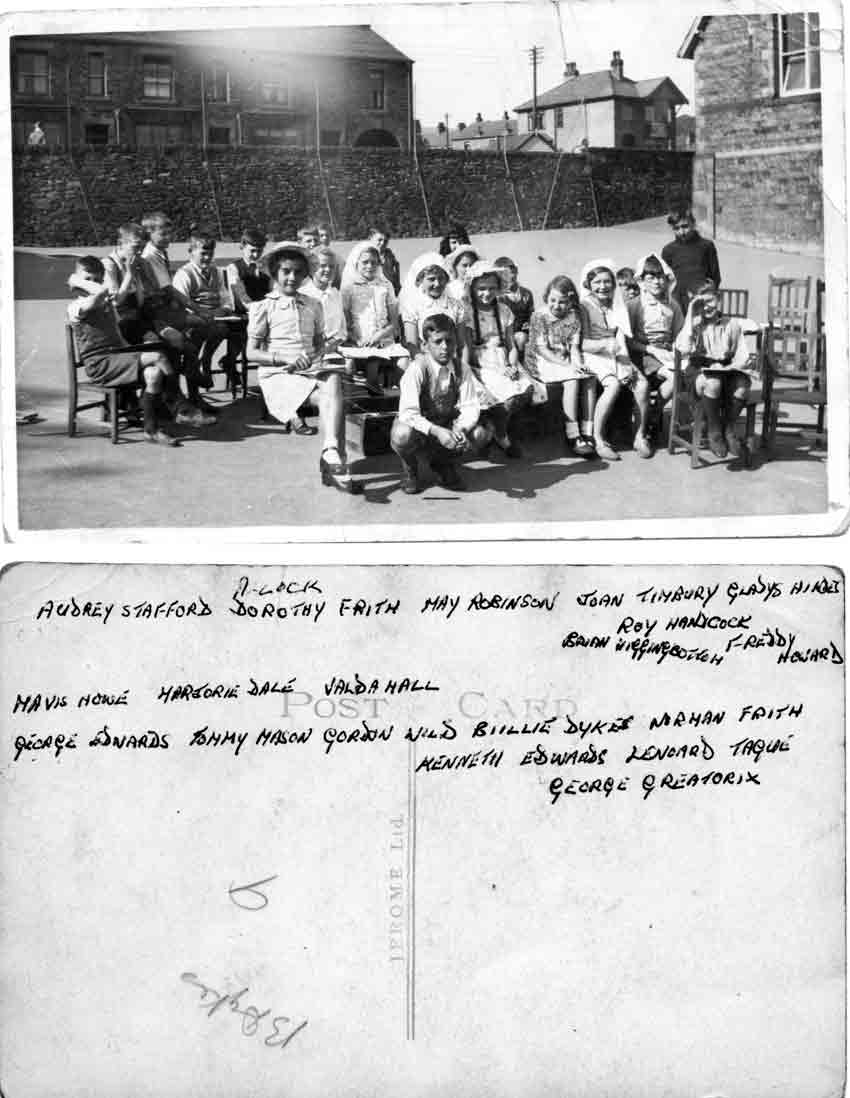 A-LOCK
AUDREY STAFFORD DOROTHY FRITH MAY ROBINSON JOAN TIMBURY GLADYS HINDES
ROY HANDCOCK
BRIAN HIGGINGBOTTOM FREDDY HOWARD
MAVIS HOWE MARJORIE DALE VALDA HALL
POST CARD
GEORGE EDWARDS TOMMY MASON GORDON WILD BIILLIE DYKES NORMAN FRITH
KENNETH EDWARDS LENOARD TAQUE
GEORGE GREATORIX
JEROME Ltd.
D
B Dykes